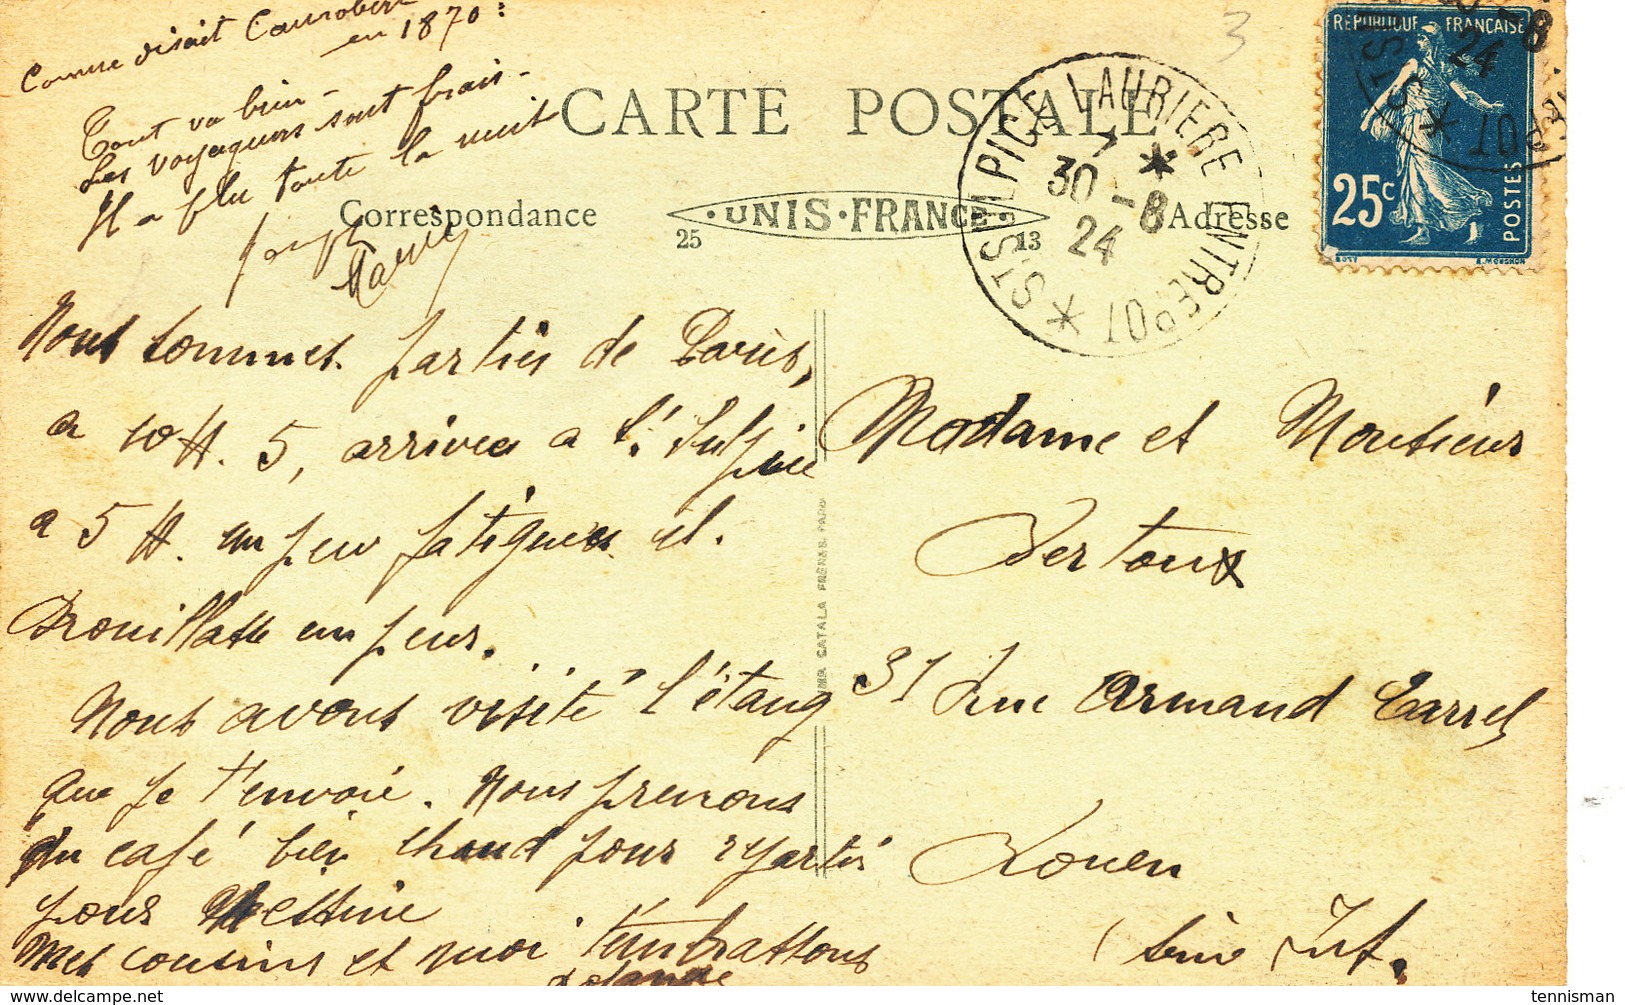 Comme disait Canrobert
en 1870 :
Tout va bien -
Les voyageurs sont frais -
Il a plu toute la nuit
Joseph
3
CARTE POSTALE
Correspondance
UNIS-FRANCE
25
13
Adresse
ST SULPICE LAURIERE ENTREPOT
7
30 - 8
24
REPUBLIQUE FRANÇAISE
25c
POSTES
Nous sommes parties de Paris,
a 10 H. 5, arrivées a St Sulpice
a 5 H. un peu fatiguées il.
Brouillasse un peu.
Nous avons visité l'étang
que je t'envoie. Nous prenons
du café bien chaud pour repartir
pour
Mes cousins et moi t'embrassons
IMP. CATALA FRERES, PARIS
Madame et Monsieur
Bertoux
31 Rue Armand Carrel
Rouen
(Seine Inf.
tennisman
delcampe.net